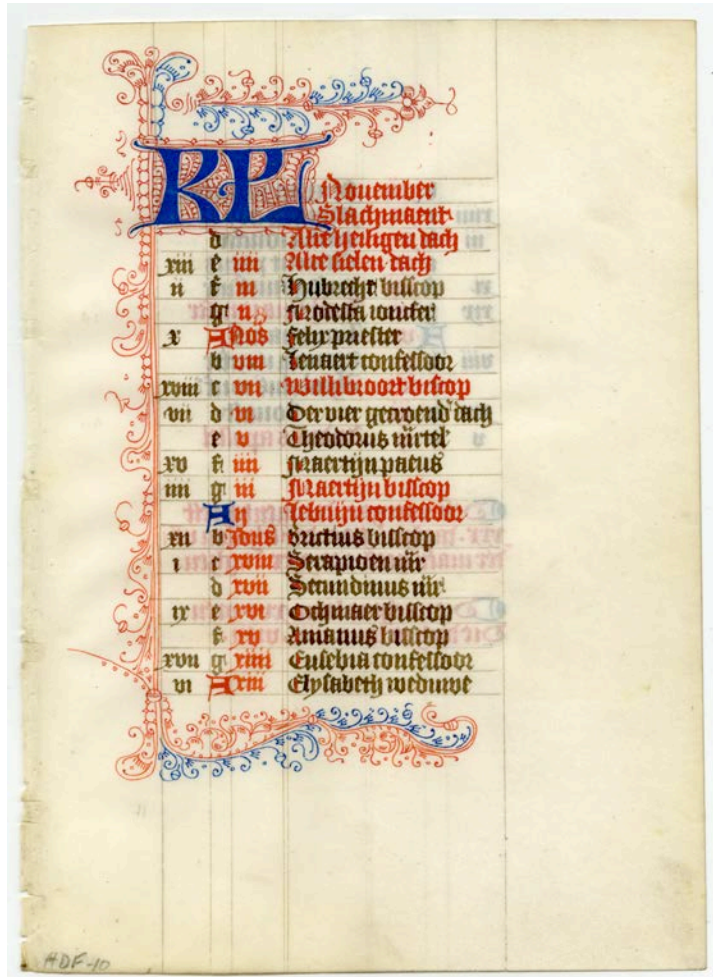 KL
Nouember
Slachmaent
d Alre heiligen dach
xiii e iiii Alre sielen dach
ii f iii Hubrecht bisscop
g ii Modesta
x A Nōs Felix priester
b viii Lenaert confessoor
xviii c vii Willibroort biscop
vii d vi Der vier gecroend dach
e v Theodorus
xv f iiii Maertijn paeus
iiii g iii Maertijn bisscop
A ij Lebuijn confessoor
xii b Idus Brictius bisscop
i c xviii Serapioen mr̄
d xvii Secundinus mr̄
ix e xvi Othmaer bisscop
f xv Amanus bisscop
xvii g xiiii Eusebia confessoor
vi A xiii Elysabeth weduwe
ADF-10